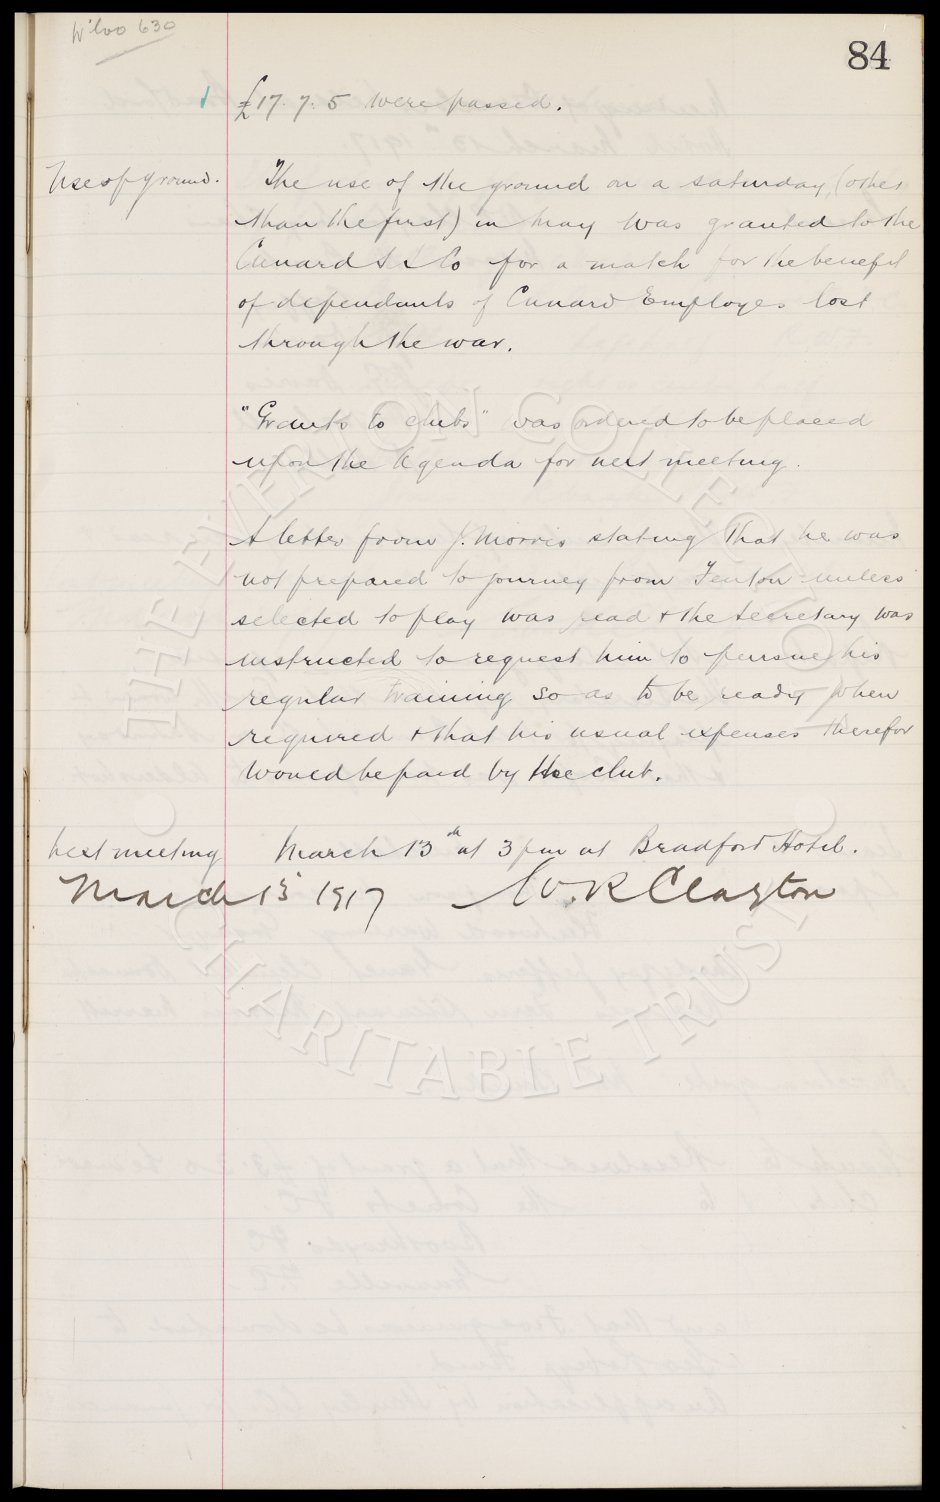 W'loo 630
84
£17. 7. 5 were passed.
Use of ground. The use of the ground on a saturday, (other
than the first) in May was granted to the
Cunard S S Co for a match for the benefit
of dependants of Cunard Employes lost
through the war.
"Grants to clubs" was ordered to be placed
upon the Agenda for next meeting.
A letter from J. Morris stating that he was
not prepared to journey from Fenton unless
selected to play was read & the Secretary was
instructed to request him to persue his
regular training so as to be ready when
required & that his usual expenses therefor
would be paid by the club.
Next meeting March 13th at 3 pm at Bradford Hotel.
March 13 1917 W. R Clayton
THE EVERTON COLLECTION
CHARITABLE TRUST